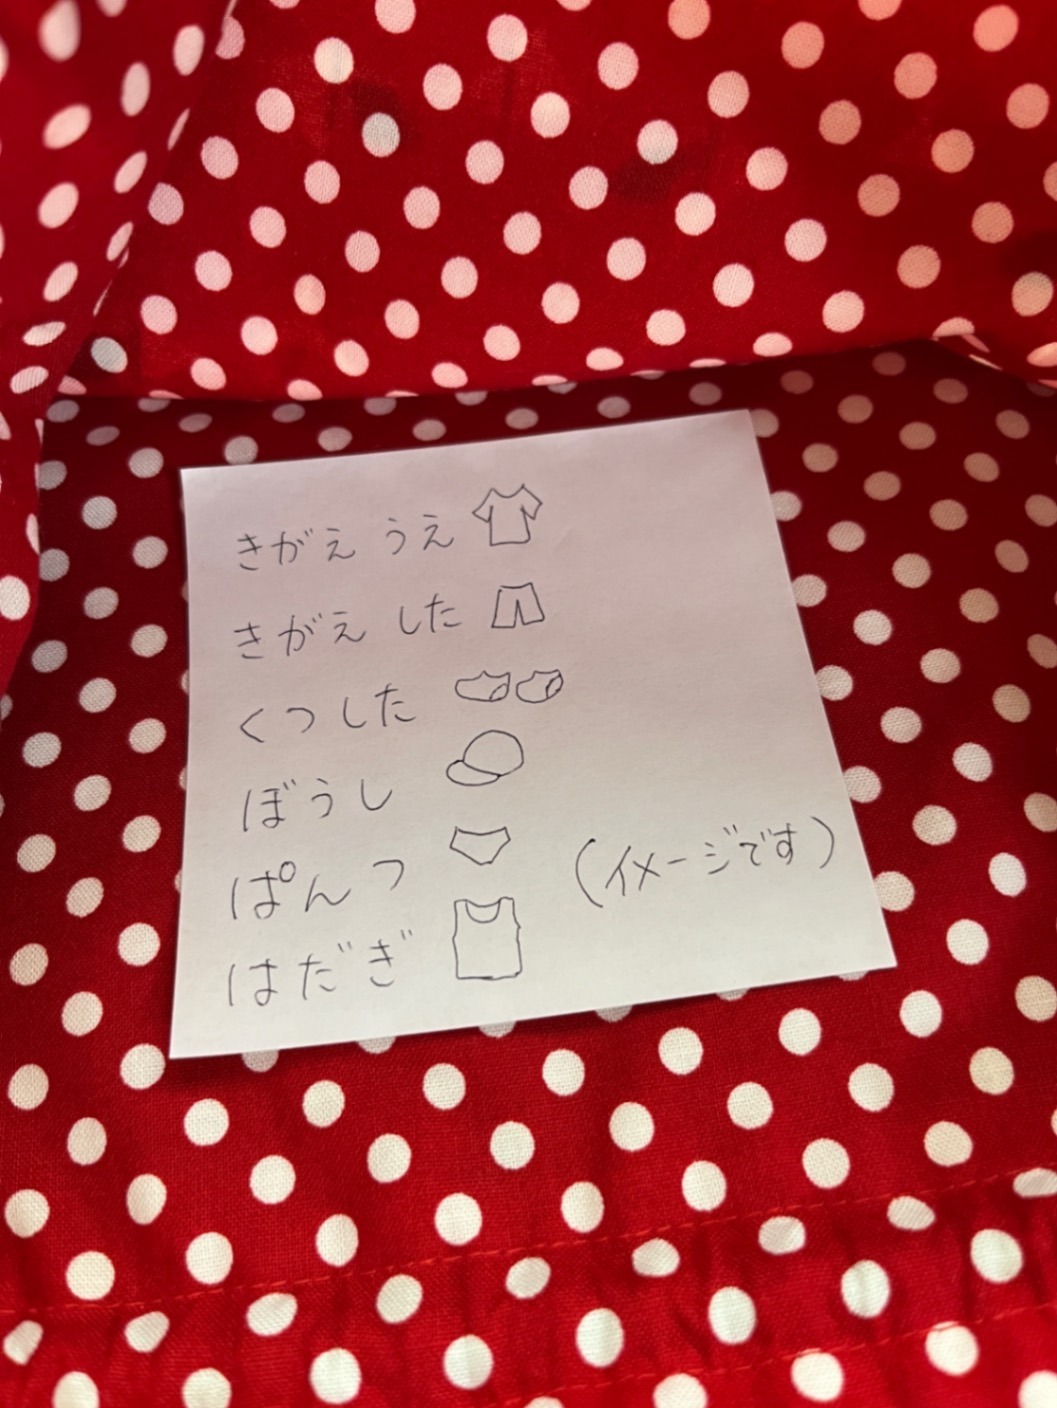 きがえ うえ
きがえ した
くつした
ぼうし
ぱんつ
(イメージです)
はだぎ